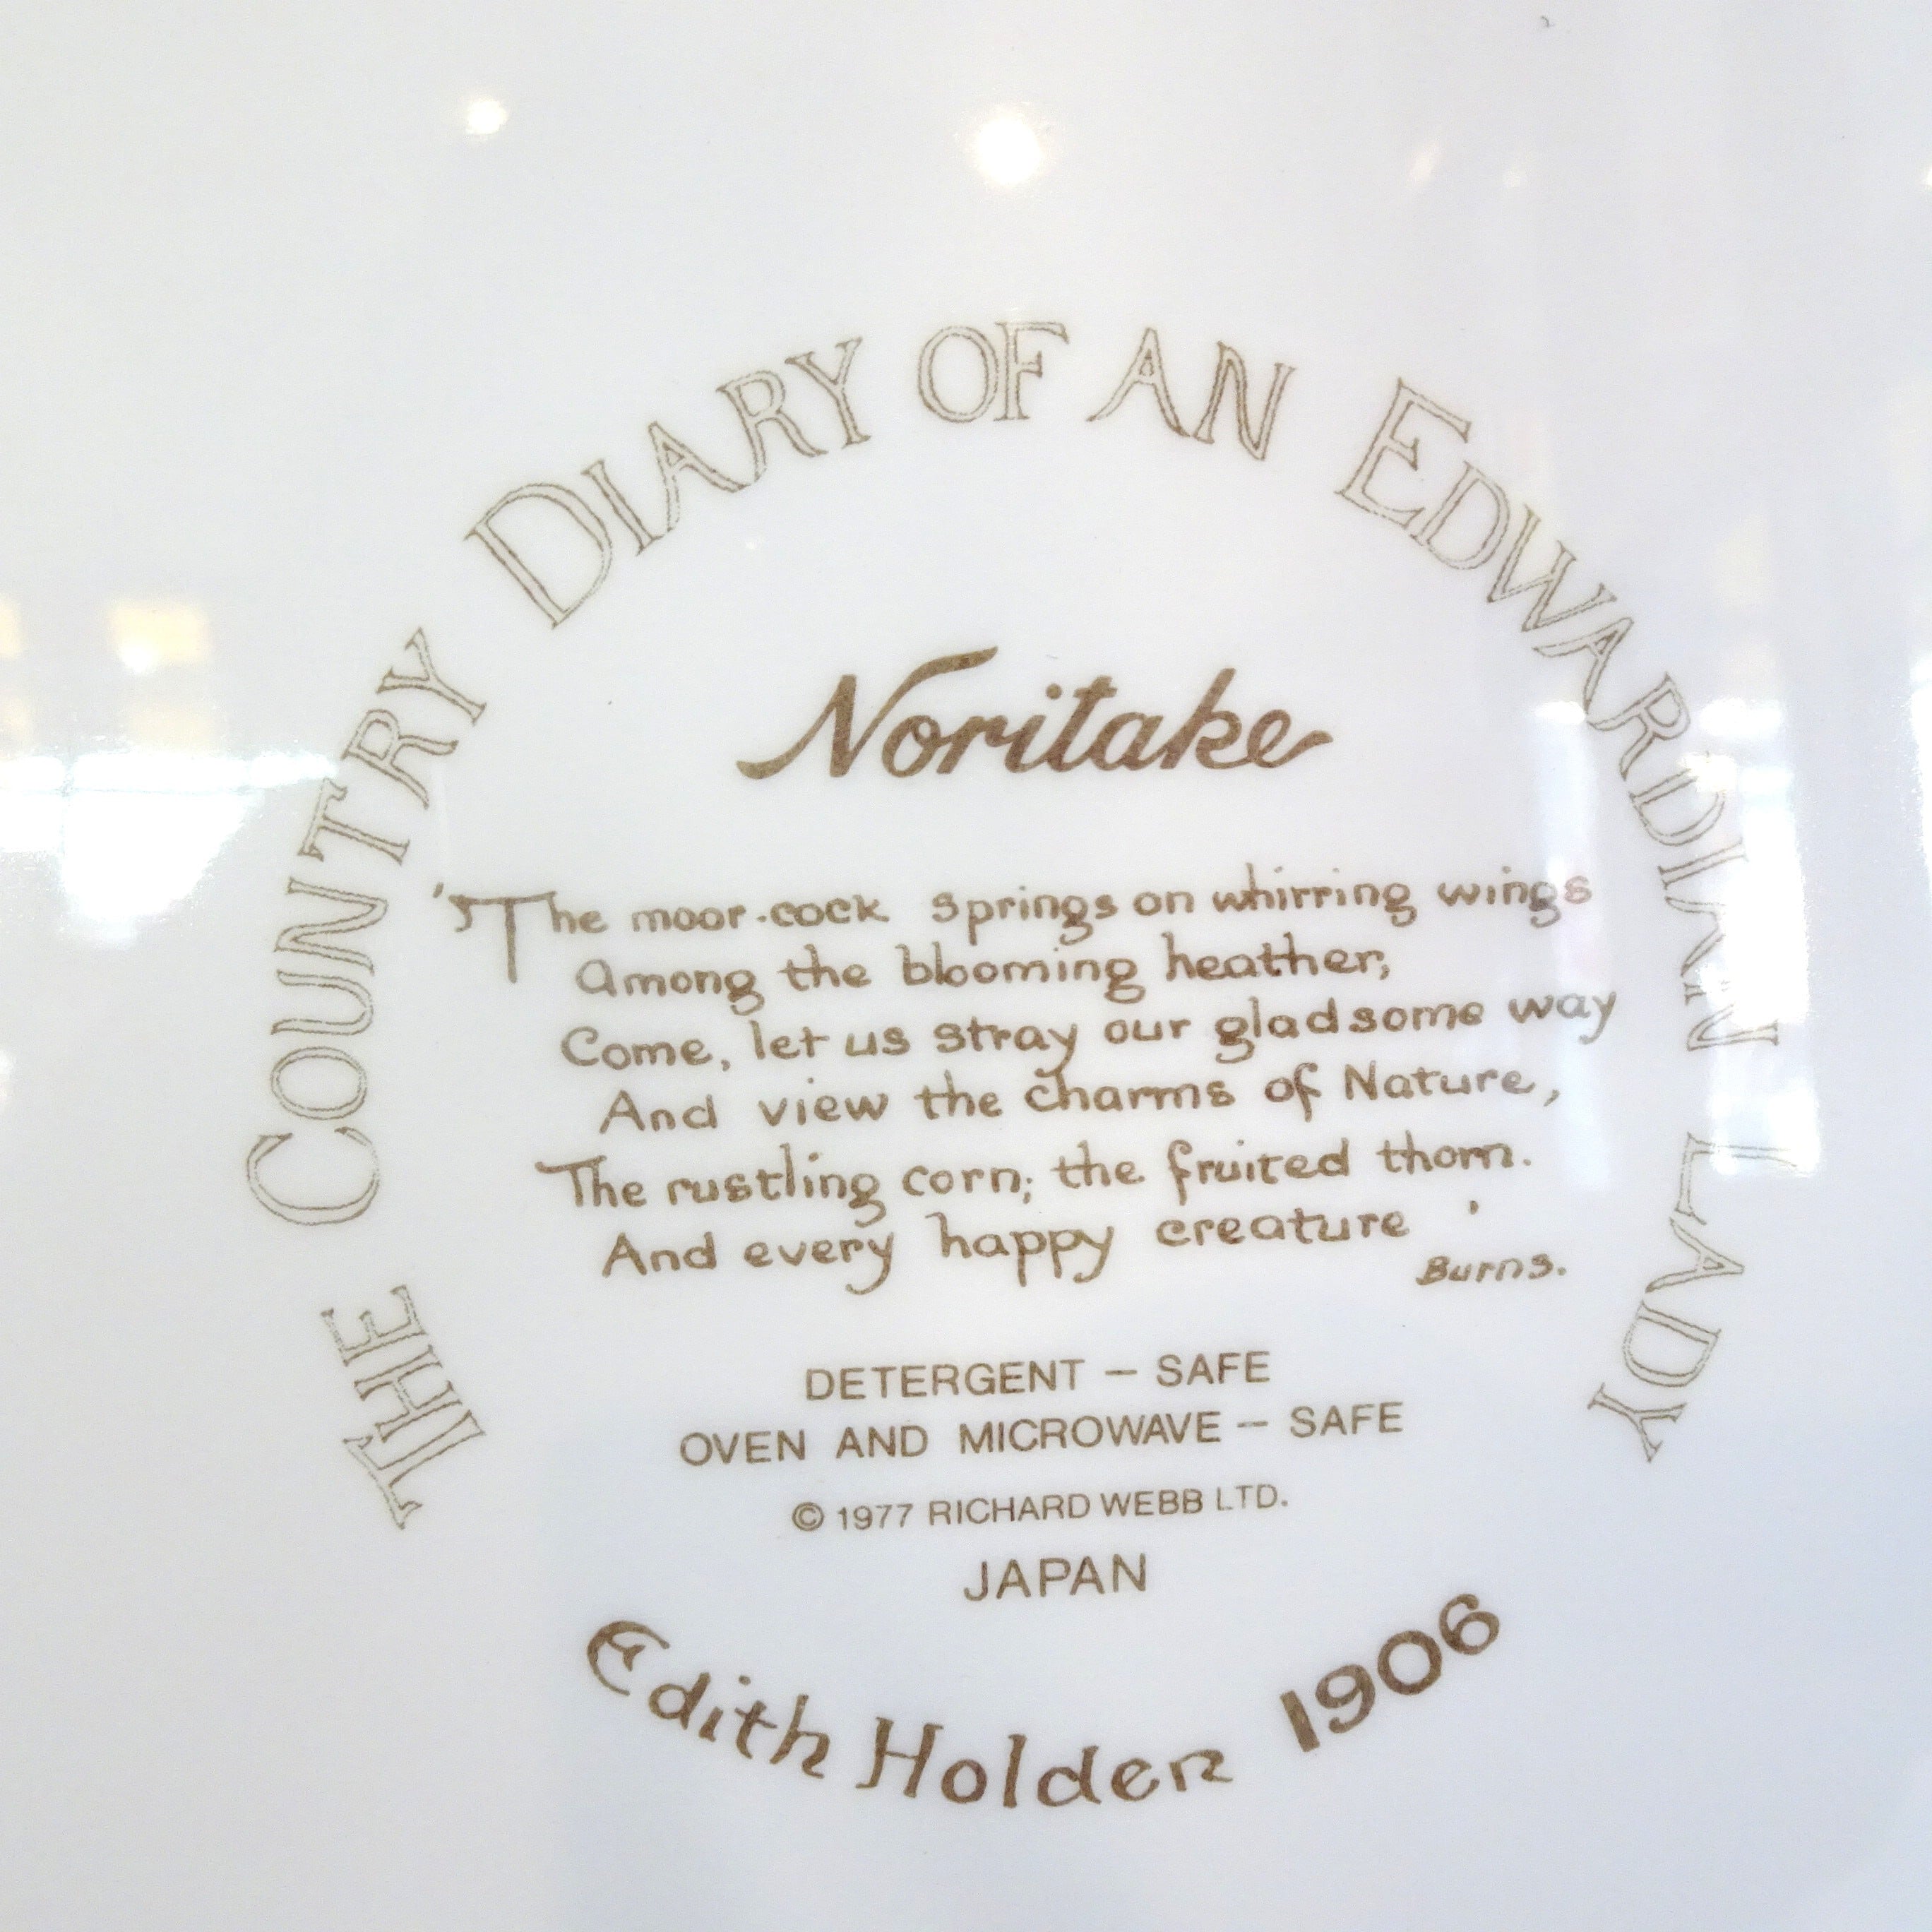 THE COUNTRY DIARY OF AN EDWARDIAN LADY
Noritake
'The moor-cock springs on whirring wings
Among the blooming heather,
Come, let us stray our gladsome way
And view the charms of Nature,
The rustling corn; the fruited thorn.
And every happy creature '
Burns.
DETERGENT – SAFE
OVEN AND MICROWAVE – SAFE
© 1977 RICHARD WEBB LTD.
JAPAN
Edith Holden 1906